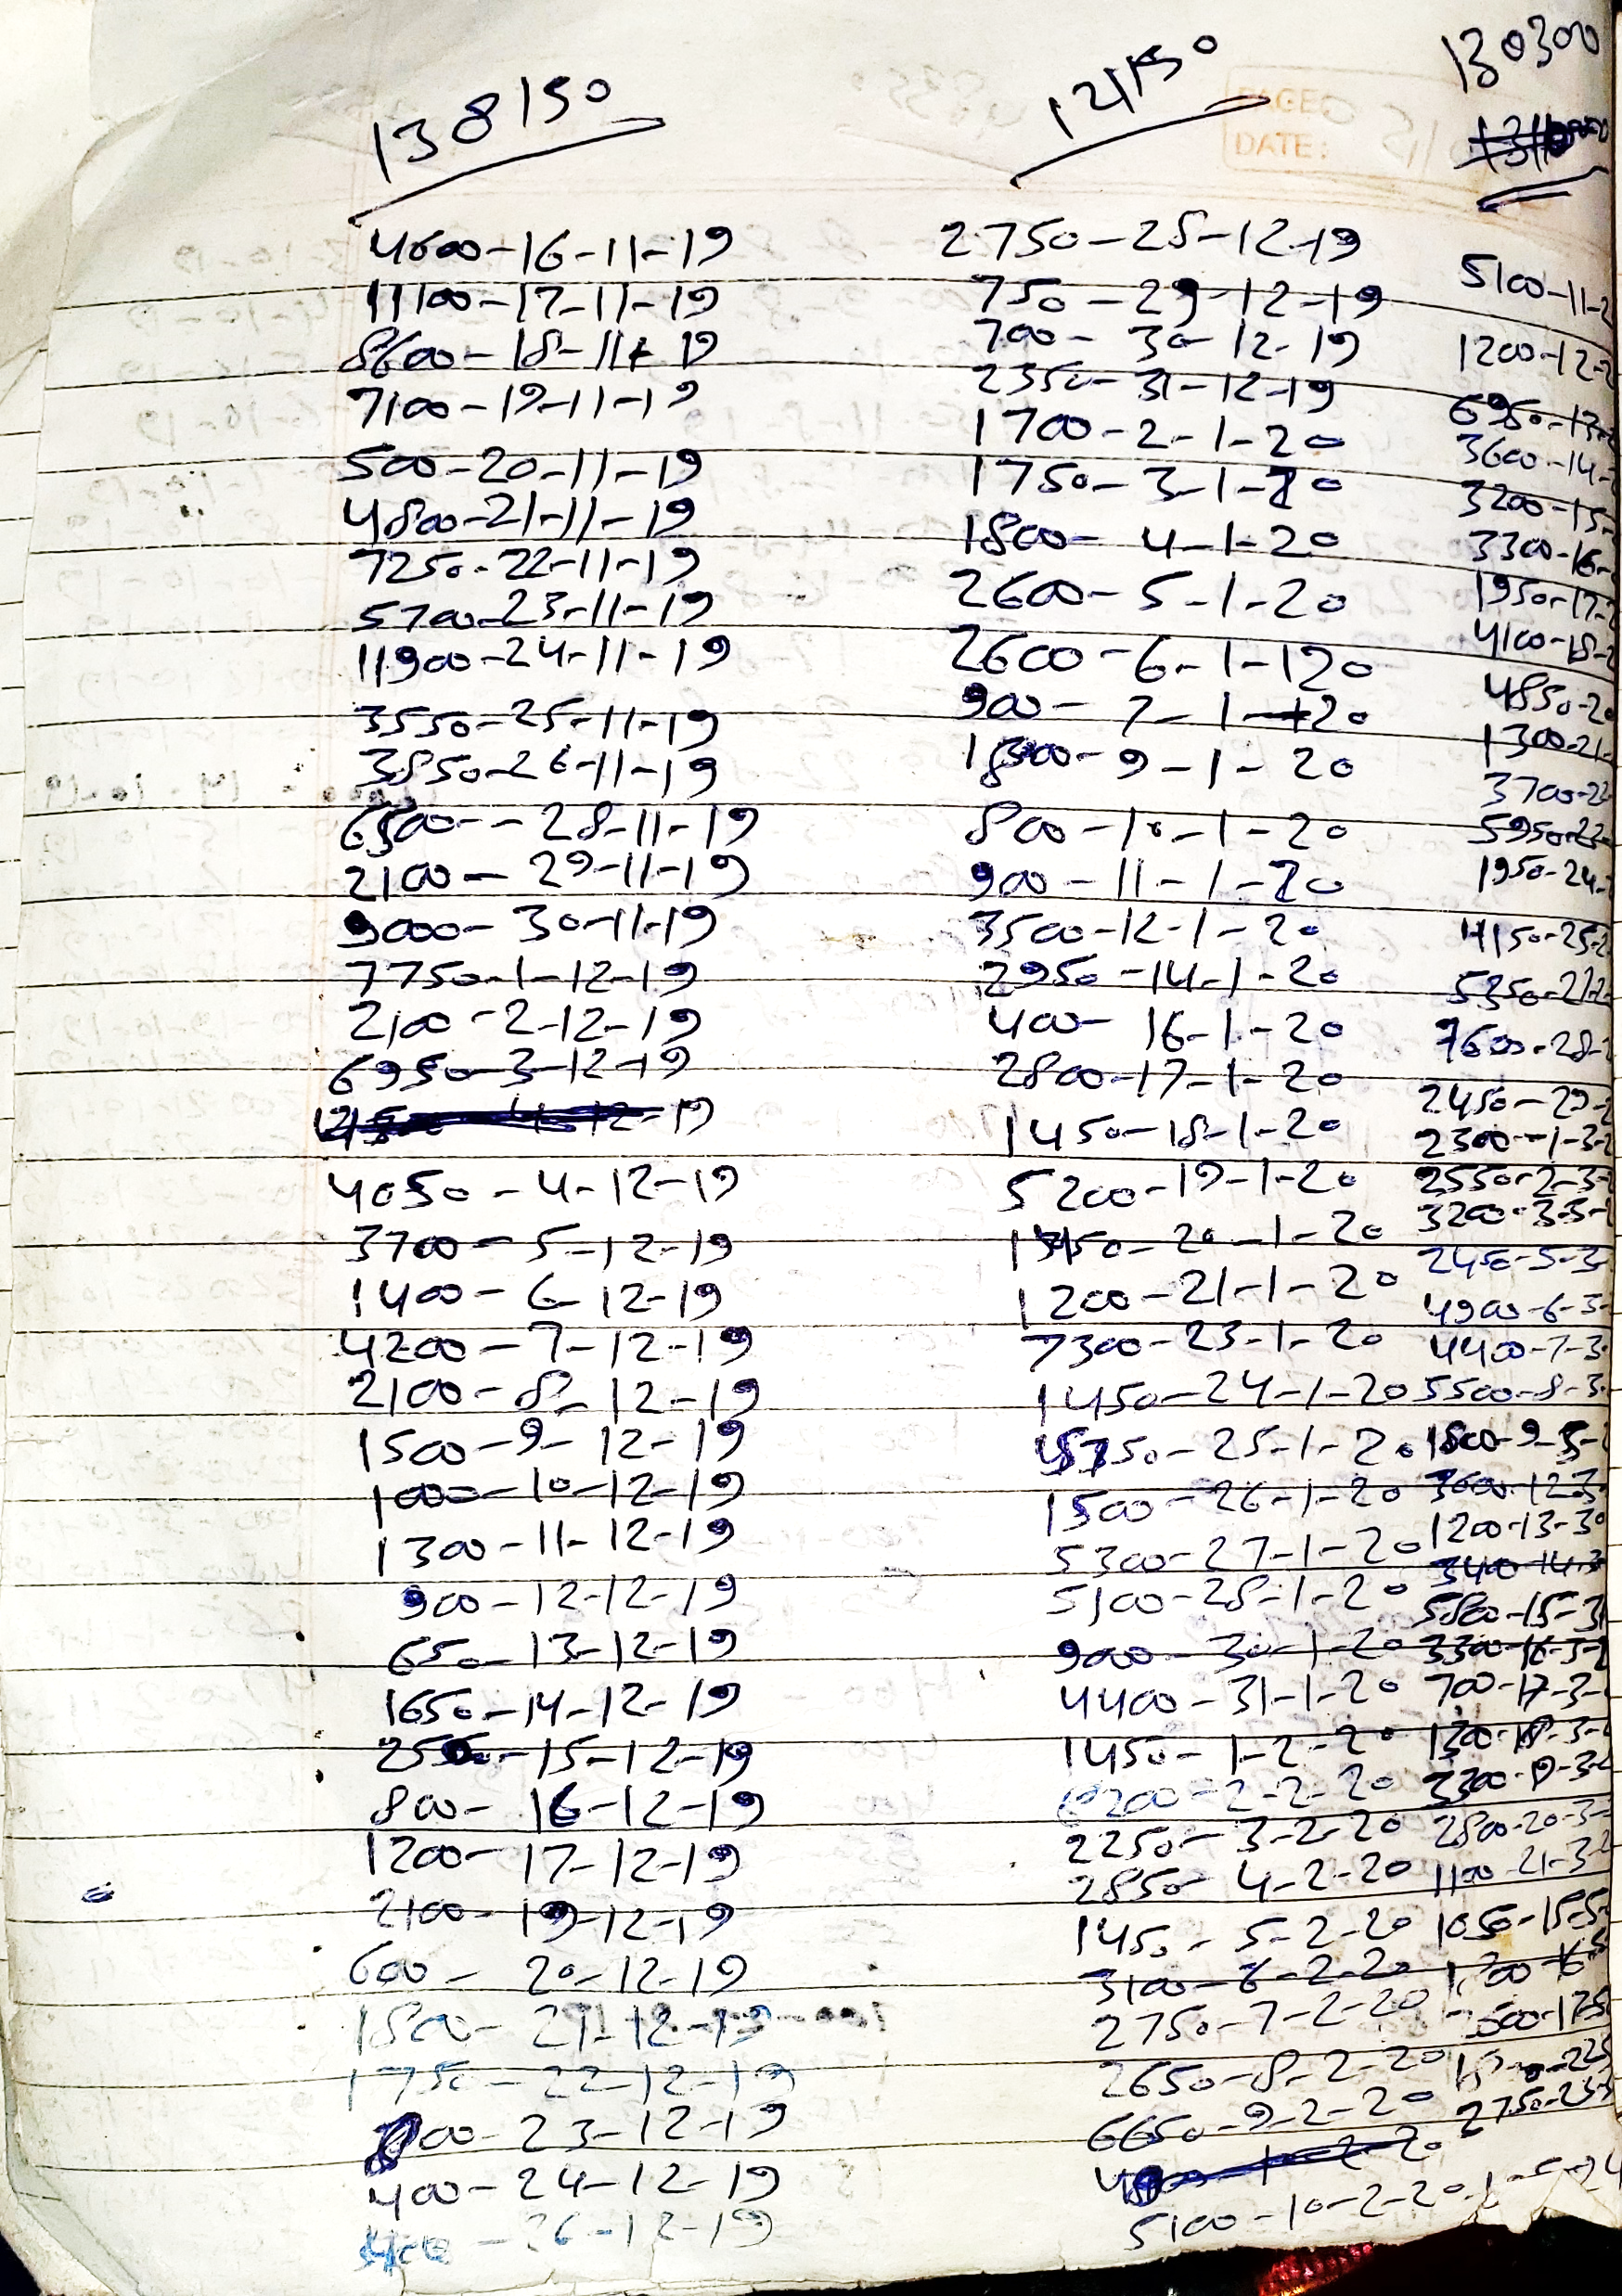 138150
4600-16-11-19
11100-17-11-19
8600-18-11-19
7100-19-11-19
500-20-11-19
4800-21-11-19
7250-22-11-19
5700-23-11-19
11900-24-11-19
3550-25-11-19
3850-26-11-19
6500-28-11-19
2100-29-11-19
9000-30-11-19
7750-1-12-19
2100-2-12-19
6950-3-12-19
4050-4-12-19
3700-5-12-19
1400-6-12-19
4200-7-12-19
2100-8-12-19
1500-9-12-19
1000-10-12-19
1300-11-12-19
900-12-12-19
650-13-12-19
1650-14-12-19
-15-12-19
800-16-12-19
1200-17-12-19
2100-19-12-19
600-20-12-19
1800-21-12-19
1750-22-12-19
-23-12-19
400-24-12-19
-26-12-19
121150
PAGE:
DATE:
2750-28-12-19
750-29-12-19
700-30-12-19
2350-31-12-19
1700-2-1-20
1750-3-1-20
1800-4-1-20
2600-5-1-20
2600-6-1-20
900-7-1-20
-9-1-20
800-10-1-20
900-11-1-20
3500-12-1-20
2950-14-1-20
400-16-1-20
2800-17-1-20
1450-18-1-20
5200-19-1-20
-20-1-20
1200-21-1-20
7300-23-1-20
1450-24-1-20
-25-1-20
1500-26-1-20
5300-27-1-20
5100-28-1-20
9000-30-1-20
4400-31-1-20
1450-1-2-20
6200-2-2-20
2250-3-2-20
2850-4-2-20
1450-5-2-20
3100-6-2-20
2750-7-2-20
2650-8-2-20
6650-9-2-20
5100-10-2-20
130300
5100-11-2
1200-12-2
6950-13-
3600-14-
3200-15-
3300-16-
1950-17-
4100-18-
4850-20
1300-21-
3700-22
5950-23-
1950-24-
4150-25-2
5350-27-2
7600-28-
2450-29-
2300-1-3-
2550-2-3-
3200-3-3-
2450-5-3-
4900-6-3-
4400-7-3-
5500-8-3-
1800-9-3-
3600-12-3
1200-13-3
3400-14-3
5800-15-3
3300-16-3-2
700-17-3-
1300-18-3-
3300-19-3-
2800-20-3-
1100-21-3-
1050-15-5-
2750-23-5